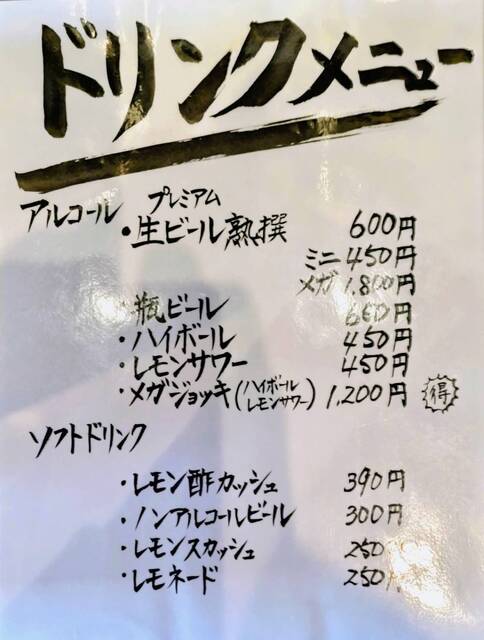 ドリンクメニュー
アルコール プレミアム
・生ビール熟撰 600円
ミニ 450円
メガ 1,800円
・瓶ビール 660円
・ハイボール 450円
・レモンサワー 450円
・メガジョッキ(ハイボール レモンサワー) 1,200円 得
ソフトドリンク
・レモン酢カッシュ 390円
・ノンアルコールビール 300円
・レモンスカッシュ 250
・レモネード 250円